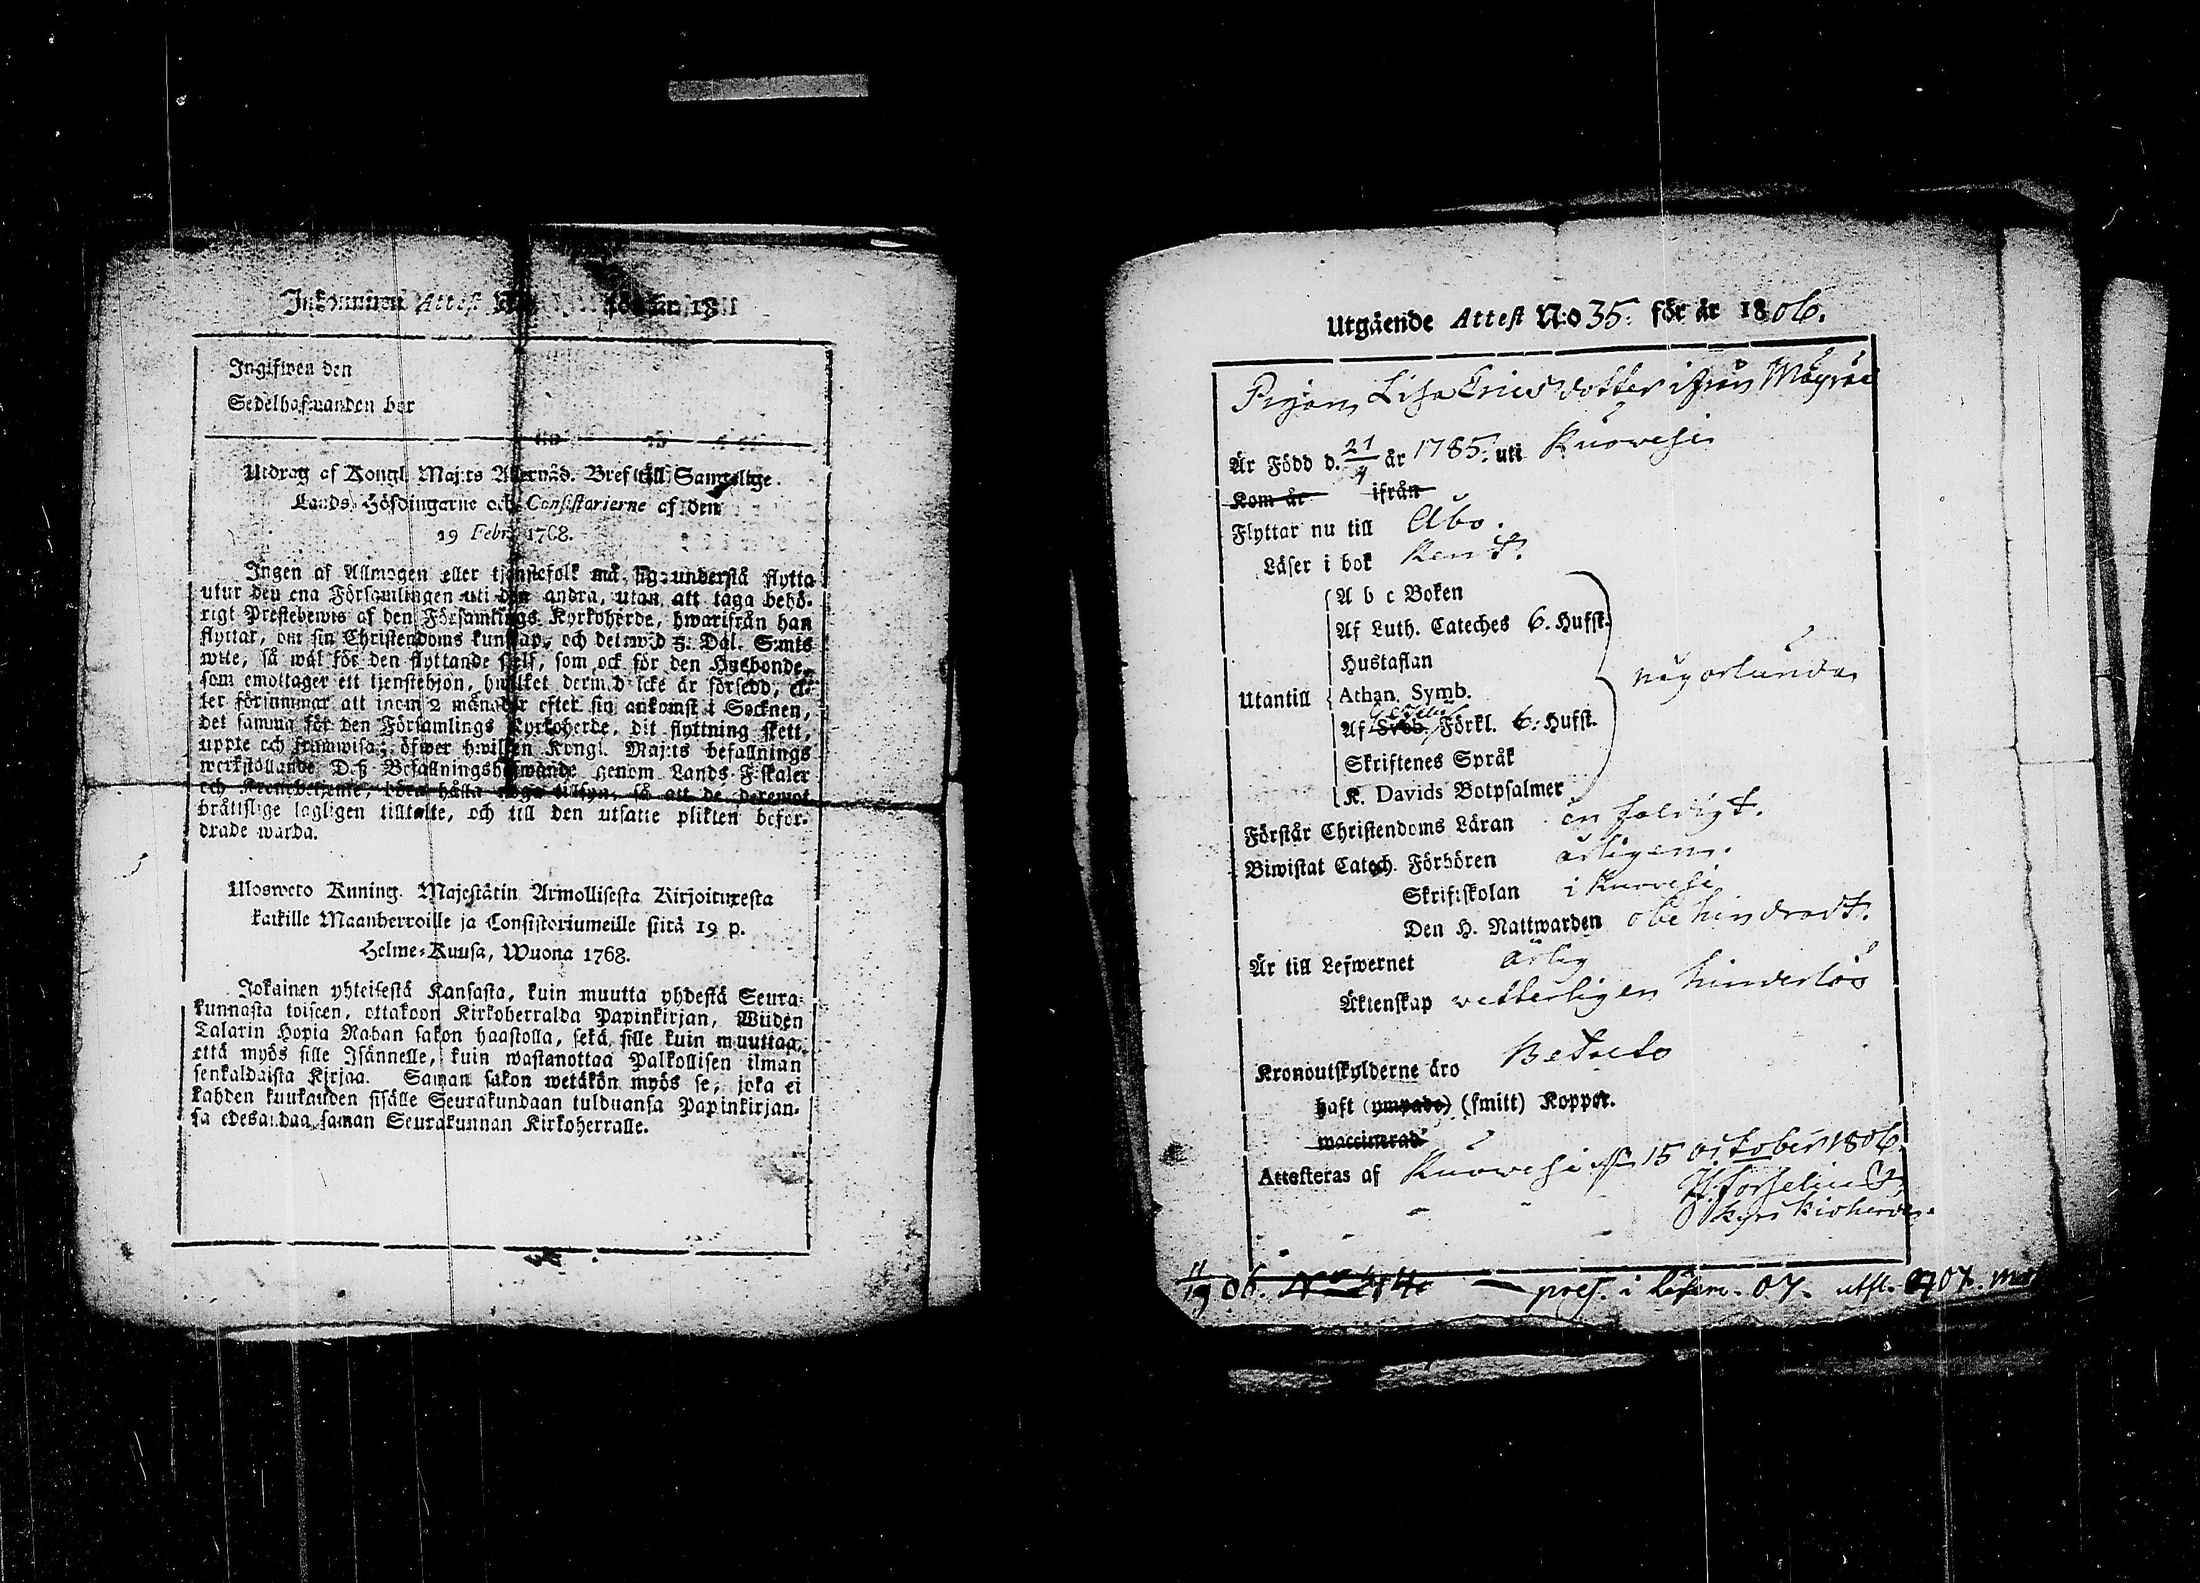 Inkommen Attest N:o för år 18
Ingifwen den
Sedelhafwanden bor
Utdrag af Kongl. Maj:ts Allernåd. Bref till Samtelige
Lands-Höfdingarne och Consistorierne af den
19 Febr. 1768.
Ingen af Allmogen eller tjenstefolk må sig understå flytta
utur den ena Församlingen uti den andra, utan att taga behö-
rigt Prestebewis af den Församlings Kyrkoherde, hwarifrån han
flyttar, om sin Christendoms kunskap, och det wid 5: Dal. S:mts
wite, så wäl för den flyttande sjelf, som ock för den Husbonde,
som emottager ett tjenstehjon, hwilket dermed icke är försedd, el-
ler försummar att inom 2 månader efter sin ankomst i Socknen,
det samma för den Församlings Kyrkoherde, dit flyttning skett,
uppte och framwisa; öfwer hwilken Kongl. Maj:ts befallnings
werkställande Deß Befallningshafwande genom Lands-Fiskaler
och Kronobetjente, böra hålla noga tillsyn, så att de deremot
bråttslige lagligen tilltalte, och till den utsatte plikten befor-
drade warda.
Ulosweto Kuning. Majestätin Armollisesta Kirjoituxesta
kaikille Maanherroille ja Consistoriumeille siitä 19 p.
Helme-Kuusa, Wuona 1768.
Jokainen yhteisestä Kansasta, kuin muutta yhdestä Seura-
kunnasta toiseen, ottakoon Kirkoherralda Papinkirjan, Wiiden
Talarin Hopia Rahan sakon haastolla, sekä sille kuin muuttaa,
että myös sille Isännelle, kuin wastanottaa Palkollisen ilman
senkaldaista Kirjaa. Saman sakon wetäkön myös se, joka ei
kahden kuukauden sisälle Seurakundaan tulduansa Papinkirjan-
sa edesandaa saman Seurakunnan Kirkoherralle.
Utgående Attest N:o 35. för år 1806.
Pigan Lisa Ericsdotter ifrån
Är Född d. 21/4 år 1785. uti Kuovesi
Kom år ifrån
Flyttar nu till Åbo.
Läser i bok rent.
A b c Boken
Af Luth. Cateches 6. Hufst.
Hustaflan
Utantill Athan. Symb. någorlunda
Af Sveb. Förkl. 6. Hufst.
Skriftenes Språk
K. Davids Botpsalmer
Förstår Christendoms Läran enfaldigt.
Biwistat Catech. Förhören årligen.
Skriftskolan i Kuovesi
Den H. Nattwarden obehindradt.
Är till Lefwernet ärlig
Äktenskap vetterligen hinderlös
Kronoutskylderne äro Betalta
haft (ympade) (smitt) Koppor.
waccinerad
Attesteras af Kuowesi d. 15 october 1806.
H. Forselius
Kyrkioherde.
11/19 06. N:o 414 — pres. i Lösen. 07. utfl. 07.